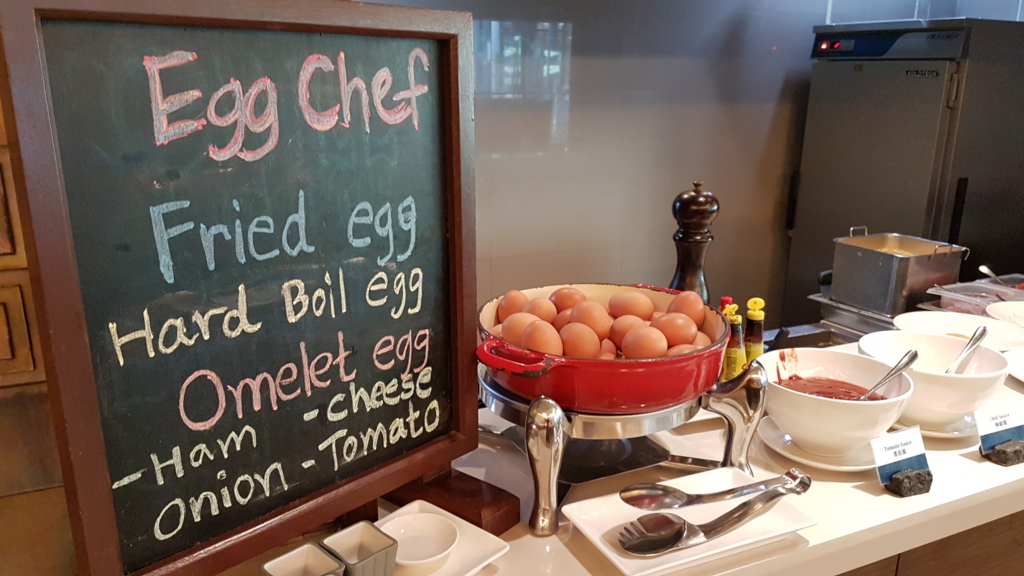 Egg Chef
Fried egg
Hard Boil egg
Omelet egg
-Ham -cheese
onion -Tomato
Tomato Sauce
Chili Sauce